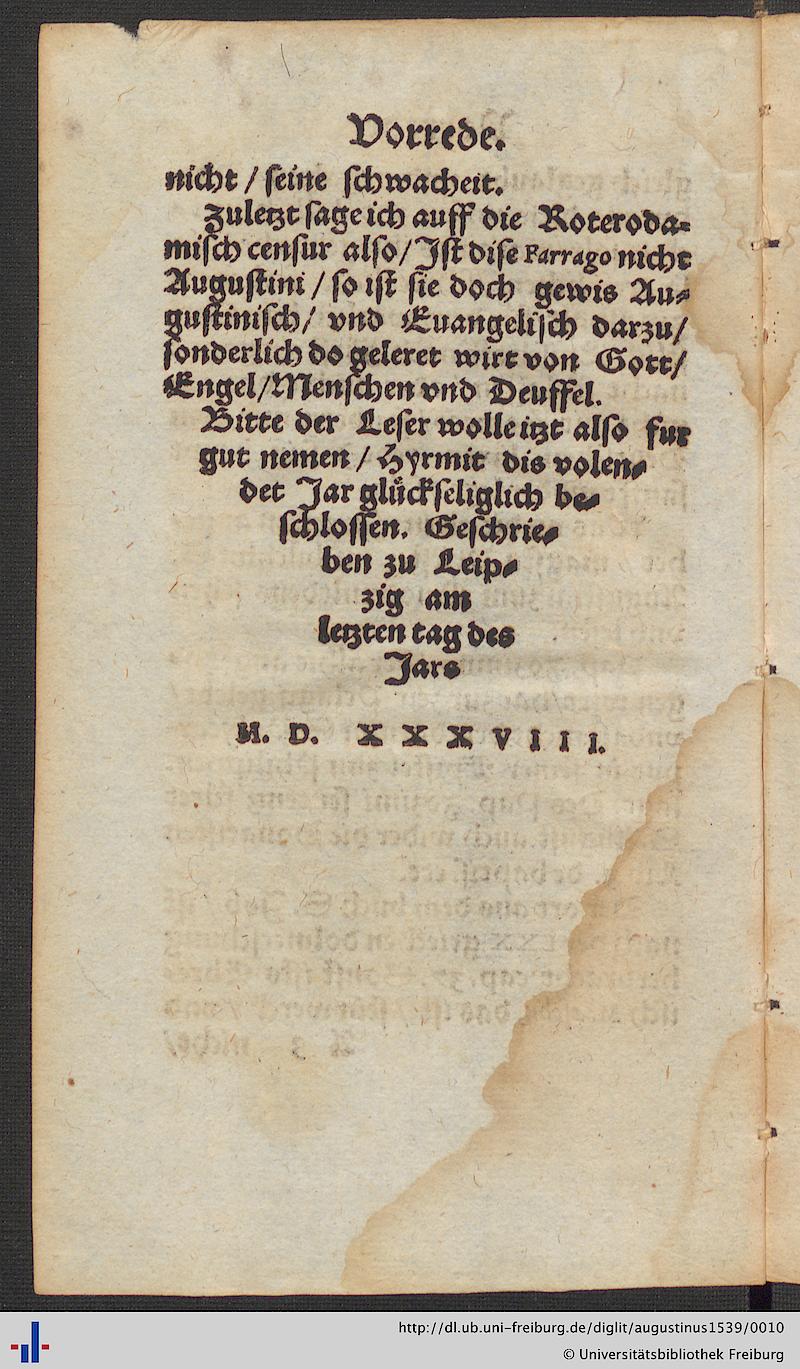 Vorrede.
nicht / seine schwacheit.
Zuletzt sage ich auff die Roteroda=
misch censur also / Ist dise Farrago nicht
Augustini / so ist sie doch gewis Au=
gustinisch / vnd Euangelisch darzu /
sonderlich do geleret wirt von Gott /
Engel / Menschen vnd Deuffel.
Bitte der Leser wolle itzt also fur
gut nemen / Hyrmit dis volen=
det Jar glückseliglich be=
schlossen. Geschrie=
ben zu Leip=
zig am
letzten tag des
Jars
M. D. XXXVIII.
http://dl.ub.uni-freiburg.de/diglit/augustinus1539/0010
© Universitätsbibliothek Freiburg